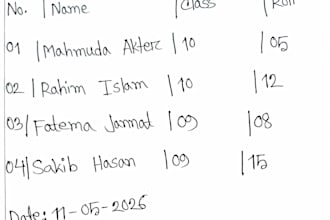 No. | Name | Class | Roll
01 | Mahmuda Akter | 10 | 05
02 | Rahim Islam | 10 | 12
03 | Fatema Jannat | 09 | 08
04 | Sakib Hasan | 09 | 15
Date: 11-05-2026